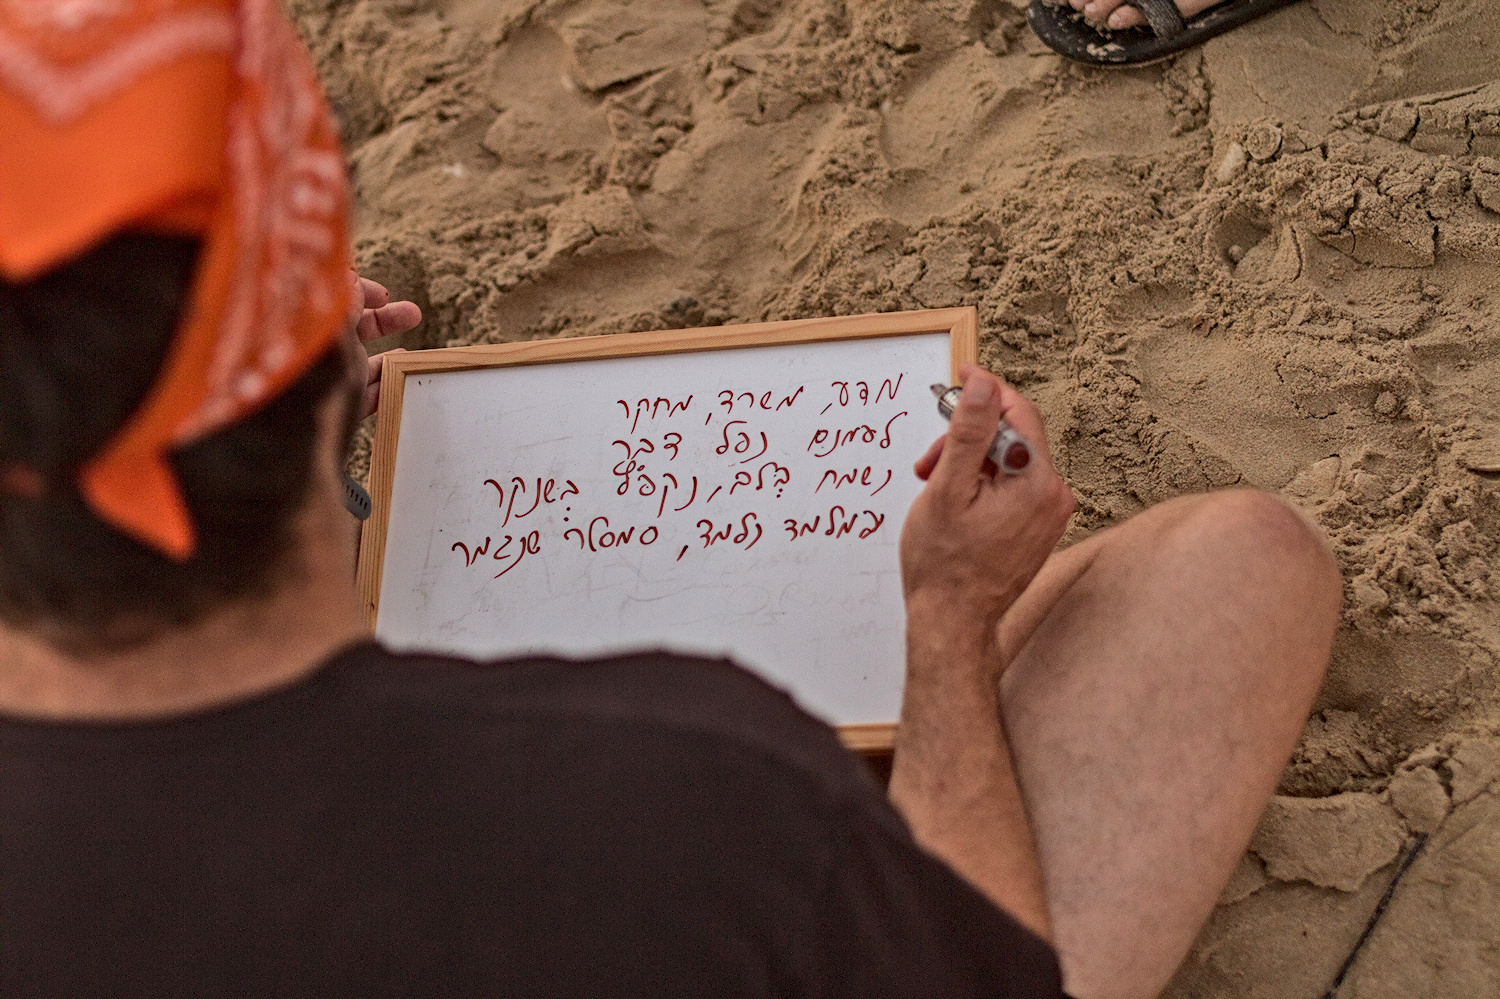 מדע, משרד, מחקר
לעמנם נפל דבר
נשמח בְּלב, נקפל בְּשנקר
נלמד, סמסטר שנגמר